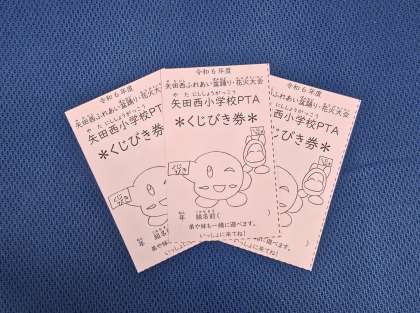 令和６年度
矢田西ふれあい盆踊り・花火大会
やたにししょうがっこう
矢田西小学校PTA
＊くじびき券＊
くじびき
年 組名前(　　)
弟や妹も一緒に遊べます。
いっしょに来てね！
令和６年度
矢田西ふれあい盆踊り・花火大会
やたにししょうがっこう
矢田西小学校PTA
＊くじびき
年
令和６年度
花火大会
小学校PTA
びき券＊
)
遊べます。
来てね！